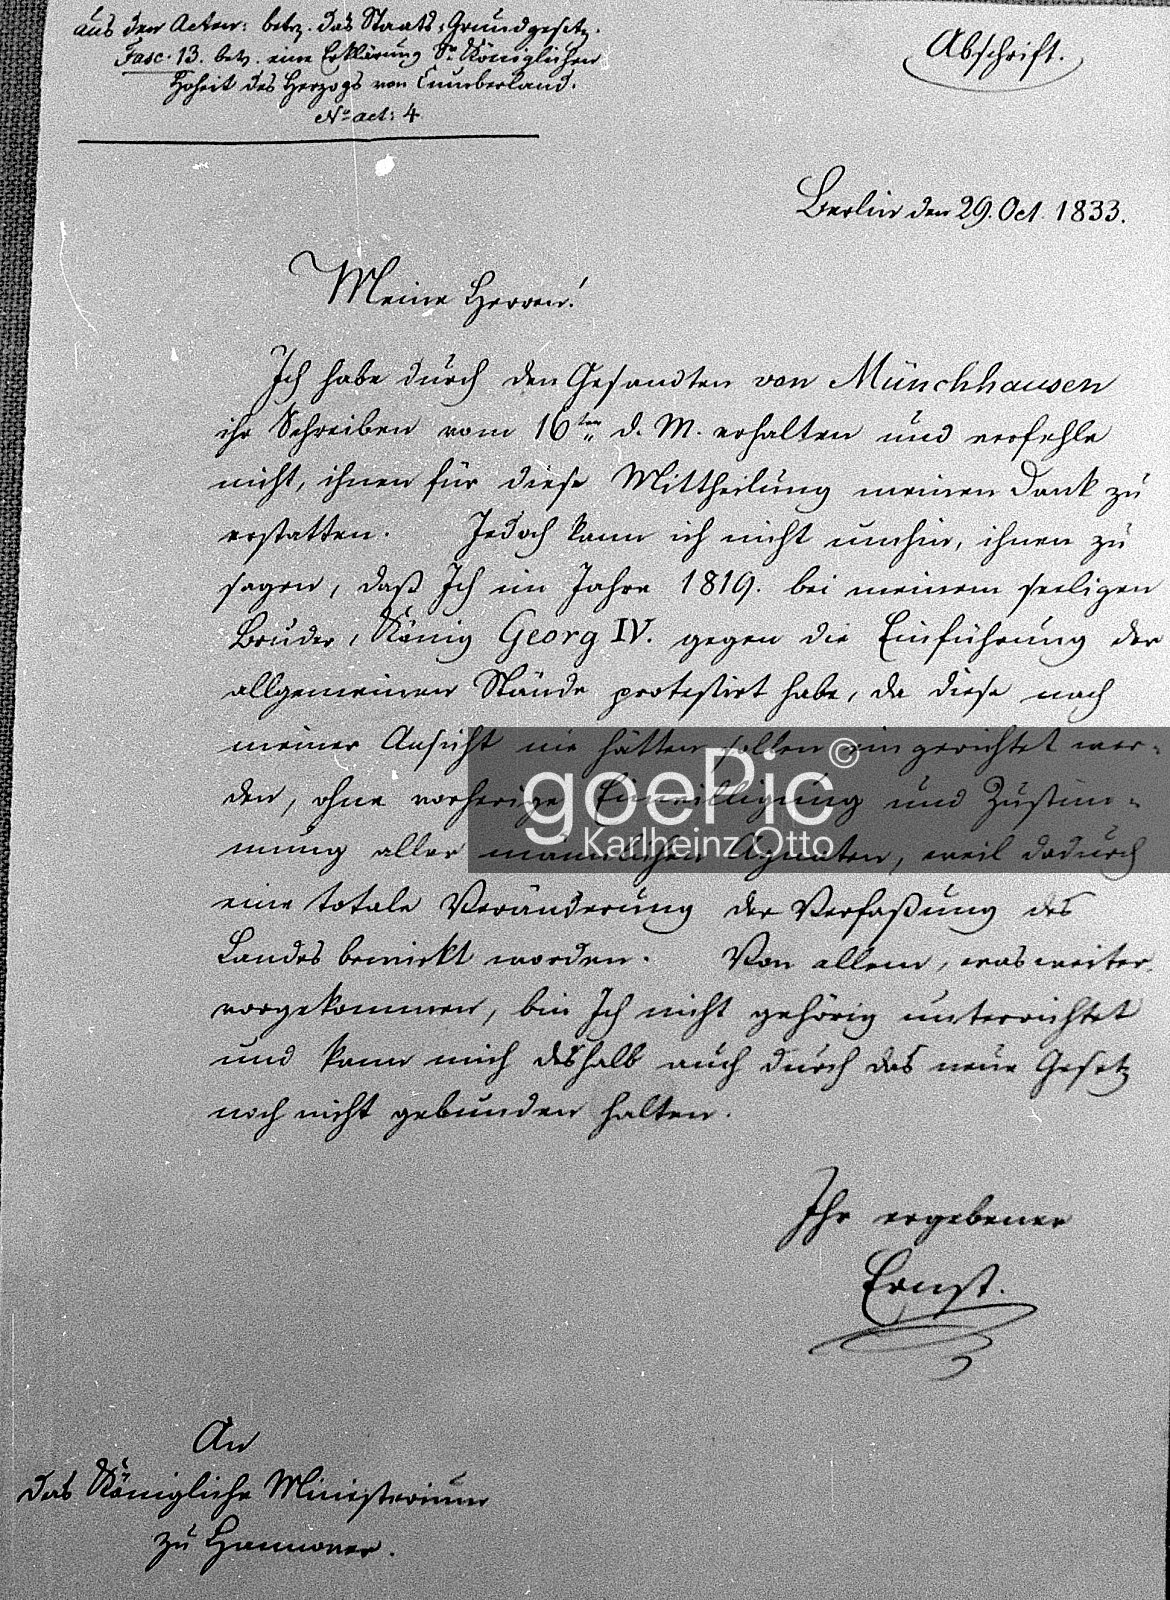 aus den Acten: betr. das Staats-Grundgesetz.
Fasc. 13. betr. eine Erklärung Sr. Königlichen
Hoheit des Herzogs von Cumberland.
No. act: 4
Abschrift.
Berlin den 29. Oct. 1833.
Meine Herren!
Ich habe durch den Gesandten von Münchhausen
ihr Schreiben vom 16ten d. M. erhalten und verfehle
nicht, ihnen für diese Mittheilung meinen Dank zu
erstatten. Jedoch kann ich nicht umhin, ihnen zu
sagen, daß Ich im Jahre 1819. bei meinem seeligen
Bruder, König Georg IV. gegen die Einführung der
allgemeinen Stände protestirt habe, da diese nach
meiner Ansicht nie hätten sollen eingerichtet wer-
den, ohne vorherige Einwilligung und Zustim-
mung aller männlichen Agnaten, weil dadurch
eine totale Veränderung der Verfaßung des
Landes bewirkt worden. Von allem, was weiter
vorgekommen, bin Ich nicht gehörig unterrichtet
und kann mich deshalb auch durch das neue Gesetz
noch nicht gebunden halten.
Ihr ergebener
Ernst.
An
das Königliche Ministerium
zu Hannover.
goePic©
Karlheinz Otto